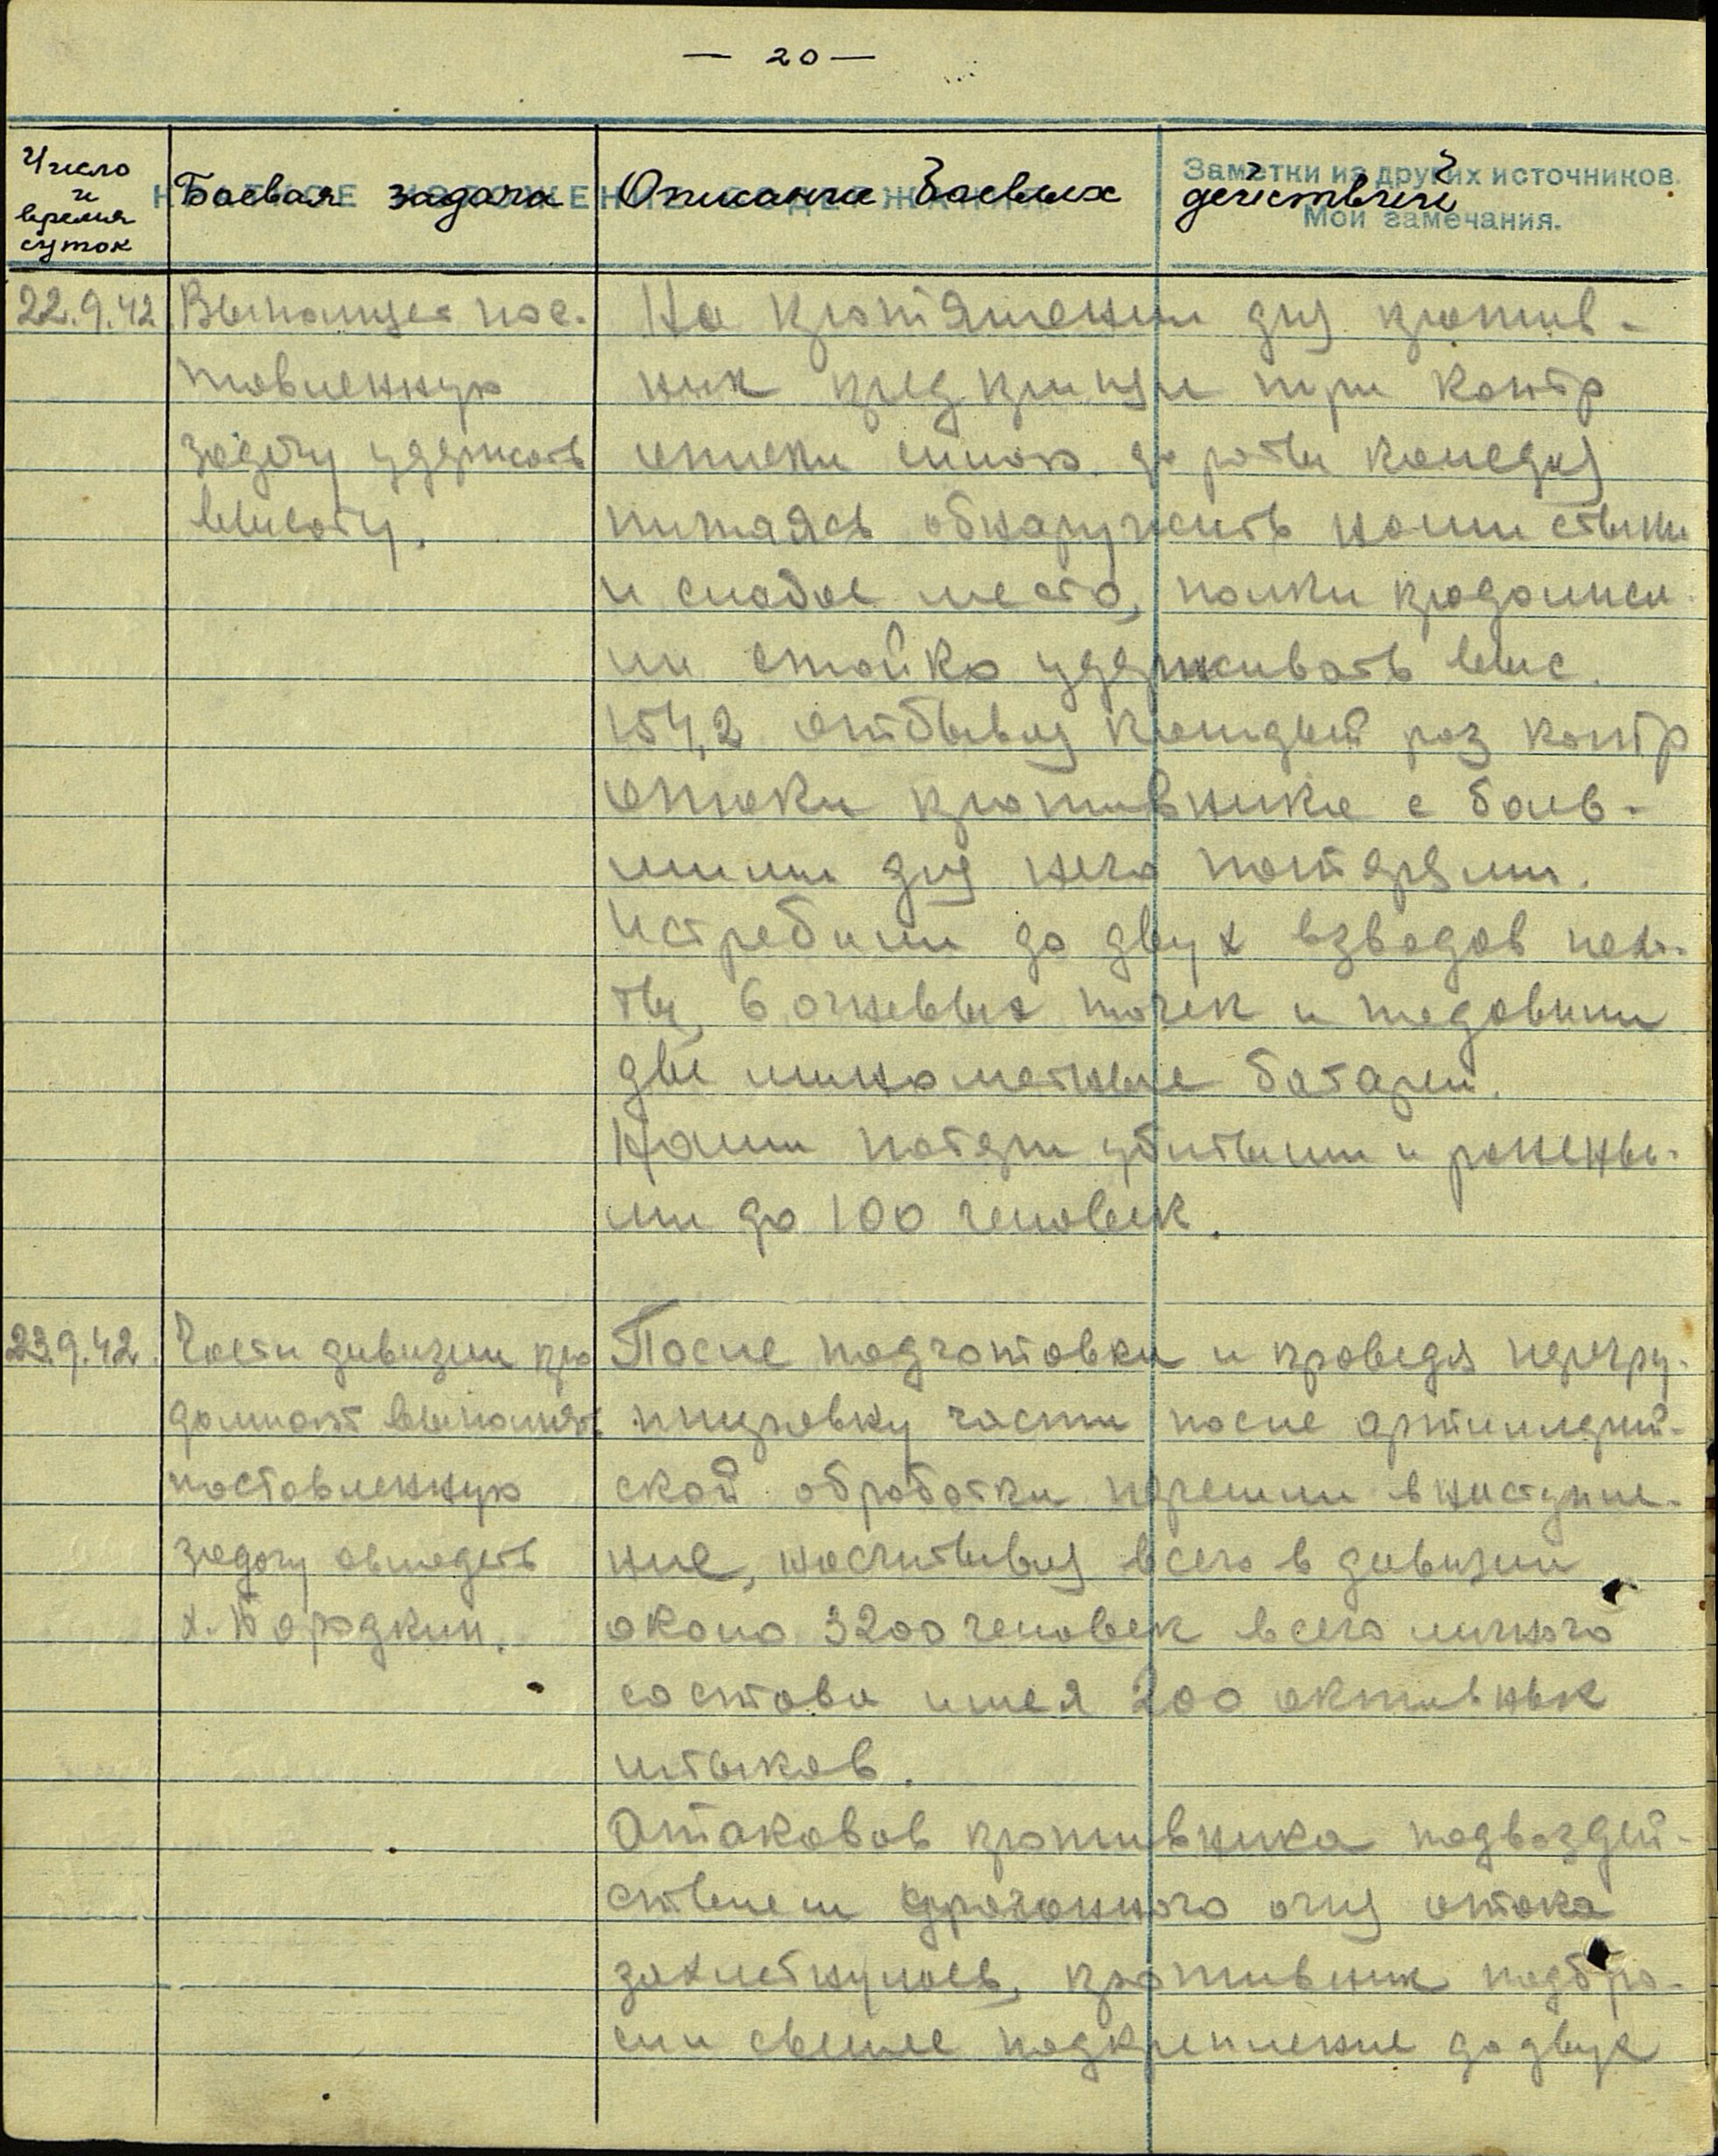 — 20 —
Число
и
время
суток
Боевая задача
Описание боевых действий
Заметки из других источников.
Мои замечания.
22.9.42
Выполняя пос-
тавленную
задачу удержать
высоту.
На протяжении дня против-
ник предпринял три контр
атаки силою до роты каждая
пытаясь обнаружить наши стыки
и слабое место, полки продолжа-
ли стойко удерживать выс.
154,2 отбивая каждый раз контр
атаки противника с боль-
шими для него потерями.
Истребили до двух взводов пехо-
ты, 6 огневых точек и подавили
две минометные батареи.
Наши потери убитыми и ранены-
ми до 100 человек.
23.9.42.
Части дивизии про
должают выполнять
поставленную
задачу овладеть
х. Бородкин.
После подготовки и проведя перегру-
ппировку части после артиллерий-
ской обработки перешли в наступле-
ние, насчитывая всего в дивизии
около 3200 человек всего личного
состава имея 200 активных
штыков.
Атаковав противника под воздей-
ствием ураганного огня атака
захлебнулась, противник подбро-
сил свежее подкрепление до двух